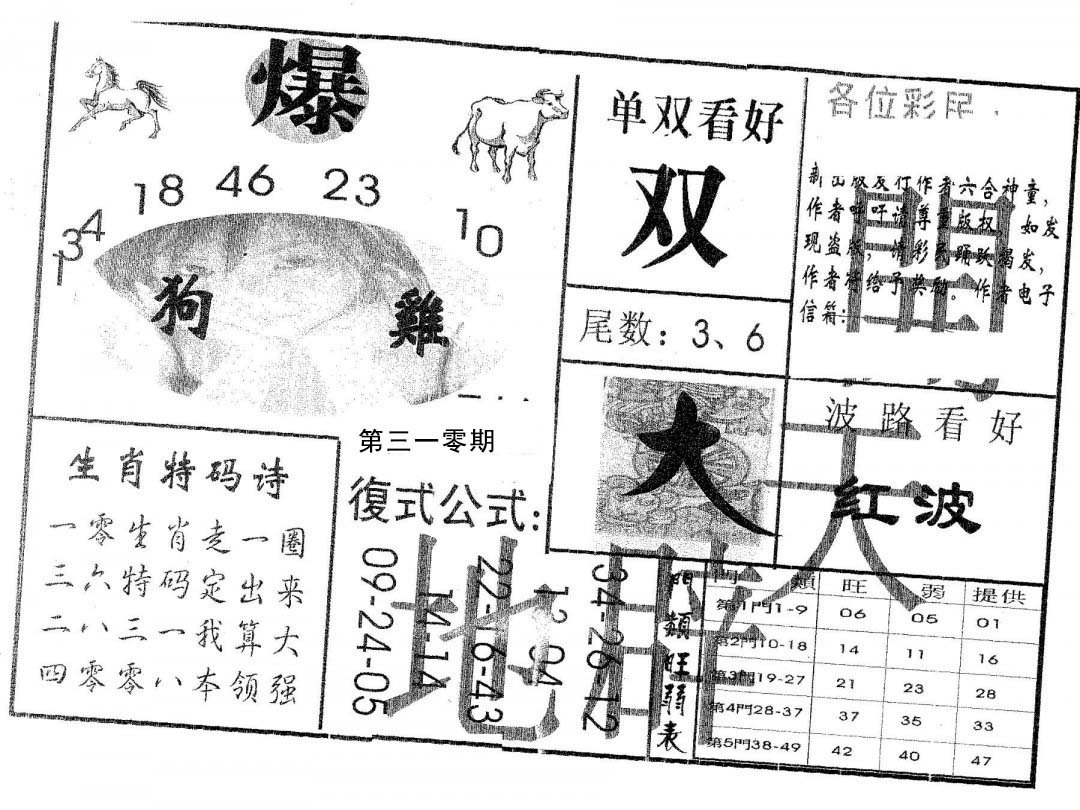 爆
18 46 23
34
10
1
狗 雞
单双看好
双
尾数：3、6
各位彩民
新出版发行作者六合神童，
作者呼吁请尊重版权，如发
现盗版，请彩民踊跃揭发，
作者将给予奖励。作者电子
信箱：
大
波路看好
红波
第三一零期
生肖特码诗
一零生肖走一圈
三六特码定出来
二八三一我算大
四零零八本领强
復式公式：
09-24-05
14-14
22-16-43
12-04
34-26-12
門類旺弱表
門 類 旺 弱 提供
第1門1-9 06 05 01
第2門10-18 14 11 16
第3門19-27 21 23 28
第4門28-37 37 35 33
第5門38-49 42 40 47